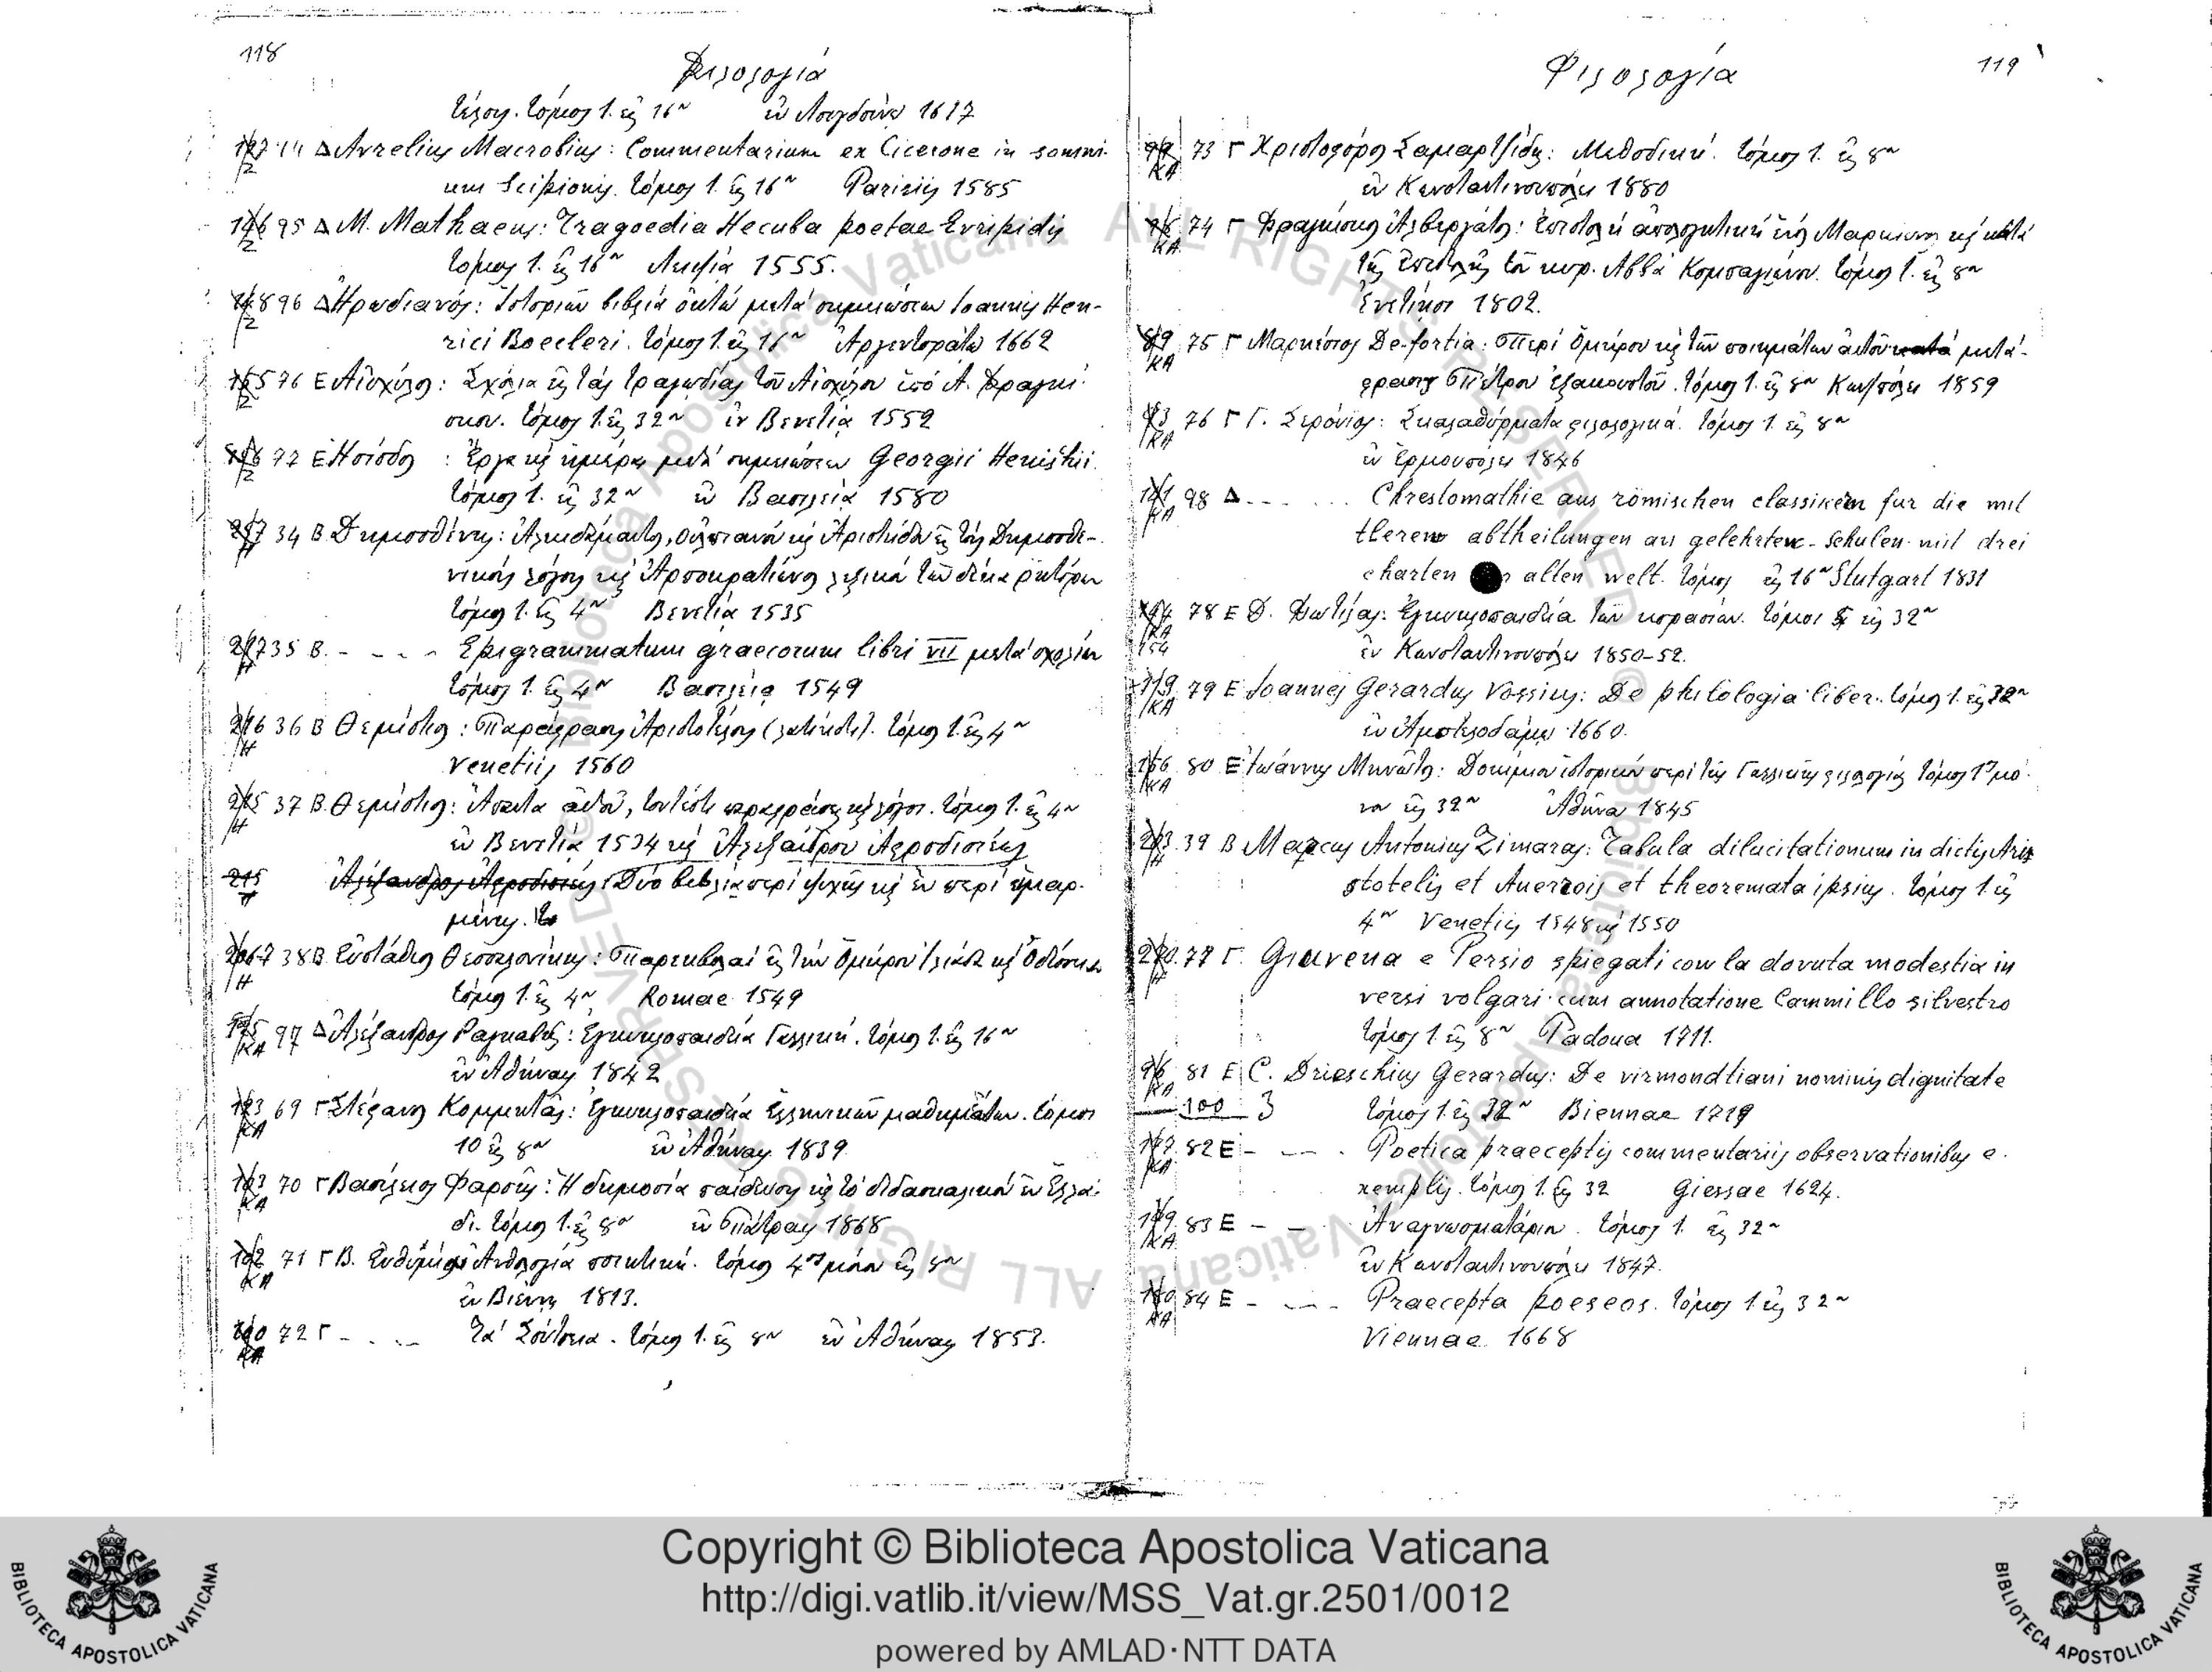 118
Φιλολογία
τέλους. τόμος 1. εἰς 16ον ἐν Λουγδούνῳ 1617
Δ Aurelius Macrobius: Commentarium ex Cicerone in somni-
um Scipionis. τόμος 1. εἰς 16ον Parisiis 1585
95 Δ M. Mathaeus: Tragoedia Hecuba poetae Euripidis
τόμος 1. εἰς 16ον Λειψία 1555.
96 Δ Ἡρωδιανός: Ἱστοριῶν βιβλία ὀκτώ μετά σημειώσεων Ioannis Hen-
rici Boecleri. τόμος 1. εἰς 16ον Ἀργεντοράτῳ 1662
76 Ε Αἰσχύλος: Σχόλια εἰς τάς τραγῳδίας τοῦ Αἰσχύλου ὑπό Α. Φραγκί-
σκου. τόμος 1. εἰς 32ον ἐν Βενετίᾳ 1552
77 Ε Ἡσίοδος: Ἔργα καί ἡμέραι μετά σημειώσεων Georgii Henishii.
τόμος 1. εἰς 32ον ἐν Βασιλείᾳ 1580
34 Β Δημοσθένης: Ἀλκιδάμαντος, Οὐλπιανοῦ καί Ἀριστείδου εἰς τούς Δημοσθε-
νικούς λόγους καί Ἁρποκρατίωνος λεξικόν τῶν δέκα ῥητόρων
τόμος 1. εἰς 4ον Βενετία 1535
35 Β. - - - - Epigrammatum graecorum libri VII μετά σχολίων
τόμος 1. εἰς 4ον Βασιλείᾳ 1549
36 Β Θεμίστιος: Παράφρασις Ἀριστοτέλους (λατινιστί). τόμος 1. εἰς 4ον
Venetiis 1560
37 Β. Θεμίστιος: Ἅπαντα αὐτοῦ, τουτέστι παραφράσεις καί λόγοι. τόμος 1. εἰς 4ον
ἐν Βενετίᾳ 1534 καί Ἀλεξάνδρου Ἀφροδισιέως
Ἀλέξανδρος Ἀφροδισιεύς: Δύο βιβλία περί ψυχῆς καί ἕν περί εἱμαρ-
μένης. το
38 Β Εὐστάθιος Θεσσαλονίκης: Παρεκβολαί εἰς τήν Ὁμήρου Ἰλιάδα καί Ὀδύσσειαν
τόμος 1. εἰς 4ον Romae 1549
97 Δ Ἀλέξανδρος Ραγκαβῆς: Ἐγκυκλοπαιδεία Γαλλική. τόμος 1. εἰς 16ον
ἐν Ἀθήναις 1842
69 Γ Στέφανος Κομμητᾶς: Ἐγκυκλοπαιδεία ἑλληνικῶν μαθημάτων. τόμοι
10 εἰς 8ον ἐν Ἀθήναις 1839
70 Γ Βασίλειος Φαρσῆς: Ἡ δημοσία παίδευσις καί τό διδασκαλικόν ἐν Ἑλλά-
δι. τόμος 1. εἰς 8ον ἐν Πάτραις 1868
71 Γ Β. Εὐθυμίου Ἀνθολογία ποιητική. τόμος 4ος μόνον εἰς 8ον
ἐν Βιέννῃ 1813.
72 Γ - . . . Τά Σούτσεια. τόμος 1. εἰς 8ον ἐν Ἀθήναις 1853.
Φιλολογία
119
73 Γ Χριστοφόρος Σαμαρτζίδης: Μεθοδική. τόμος 1. εἰς 8ον
ἐν Κωνσταντινουπόλει 1880
74 Γ Φραγκίσκος Ἀλβεργάτος: Ἐπιστολή ἀπολογητική εἰς Μαρκίωνος καί κατά
τῆς ἐπιστολῆς τοῦ κυρ. Ἀββᾶ Κομπαγιώνου. τόμος 1. εἰς 8ον
Ἐνετίησι 1802.
75 Γ Μαρκέσιος De-fortia: Περί Ὁμήρου καί τῶν ποιημάτων αὐτοῦ κατά μετά-
φρασιν Πέτρου ἐξακουστοῦ. τόμος 1. εἰς 8ον Κων/πόλει 1859
76 Γ Γ. Σερούιος: Σκαλαθύρματα φιλολογικά. τόμος 1. εἰς 8ον
ἐν Ἑρμουπόλει 1846
98 Δ - - - . . . Chrestomathie aus römischen classikern fur die mit
tleren abtheilungen an gelehrten-Schulen mit drei
charten alten welt. τόμος εἰς 16ον Stutgart 1831
78 Ε Δ. Φωτίλας: Ἐγκυκλοπαιδεία τῶν κορασίων. τόμοι 5 εἰς 32ον
ἐν Κωνσταντινουπόλει 1850-52.
79 Ε Ioannes Gerardus Vossius: De philologia liber. τόμος 1. εἰς 32ον
ἐν Ἀμστελοδάμῳ 1660.
80 Ε Ἰωάννης Μηνᾶτος: Δοκίμιον ἱστορικόν περί τῆς Γαλλικῆς φιλολογίας τόμος 1ος μό-
νον εἰς 32ον Ἀθῆναι 1845
39 Β Marcus Antonius Zimaras: Tabula dilucitationum in dictis Aris
stotelis et Auerrois et theoremata ipsius. τόμος 1. εἰς
4ον Venetiis 1548 καί 1550
77 Γ. Giuvena e Persio spiegati con la dovuta modestia in
versi volgari cum annotatione Cammillo silvestro
τόμος 1. εἰς 8ον Padoua 1711.
81 Ε C. Drieschius Gerardus: De virmondtiani nominis dignitate
100 3 τόμος 1. εἰς 32ον Biennae 1719
82 Ε - - - . Poetica praeceptis commentariis observationibus e.
xemplis. τόμος 1. εἰς 32 Giessae 1624.
83 Ε - - Ἀναγνωσματάριον. τόμος 1. εἰς 32ον
ἐν Κωνσταντινουπόλει 1847.
84 Ε - . - - Praecepta poeseos. τόμος 1. εἰς 32ον
Viennae 1668
Copyright © Biblioteca Apostolica Vaticana
http://digi.vatlib.it/view/MSS_Vat.gr.2501/0012
powered by AMLAD·NTT DATA
BIBLIOTECA APOSTOLICA VATICANA
BIBLIOTECA APOSTOLICA VATICANA